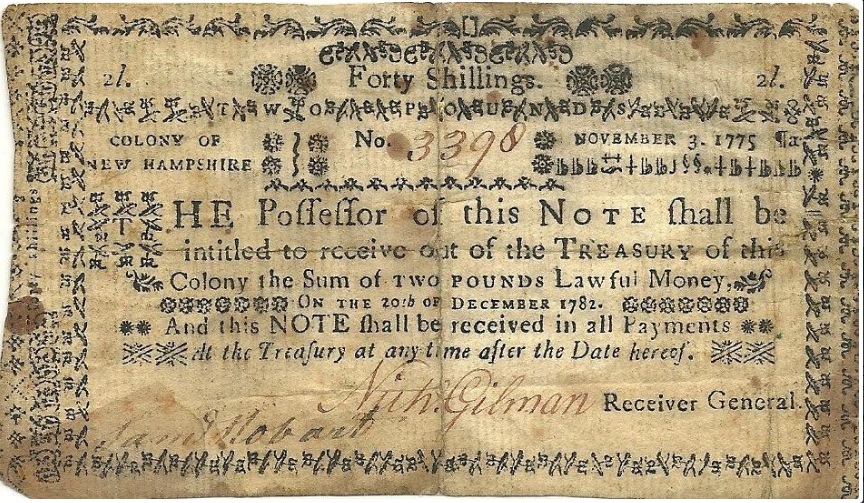 2l. Forty Shillings. 2l.
TWO POUNDS
COLONY OF No. 3398 NOVEMBER 3. 1775
NEW HAMPSHIRE
THE Poſſeſſor of this NOTE ſhall be
intitled to receive out of the TREASURY of this
Colony the Sum of TWO POUNDS Lawful Money,
ON THE 20th OF DECEMBER 1782.
And this NOTE ſhall be received in all Payments
At the Treaſury at any time after the Date hereof.
Nichs. Gilman Receiver General.
Saml Hobart
shillings